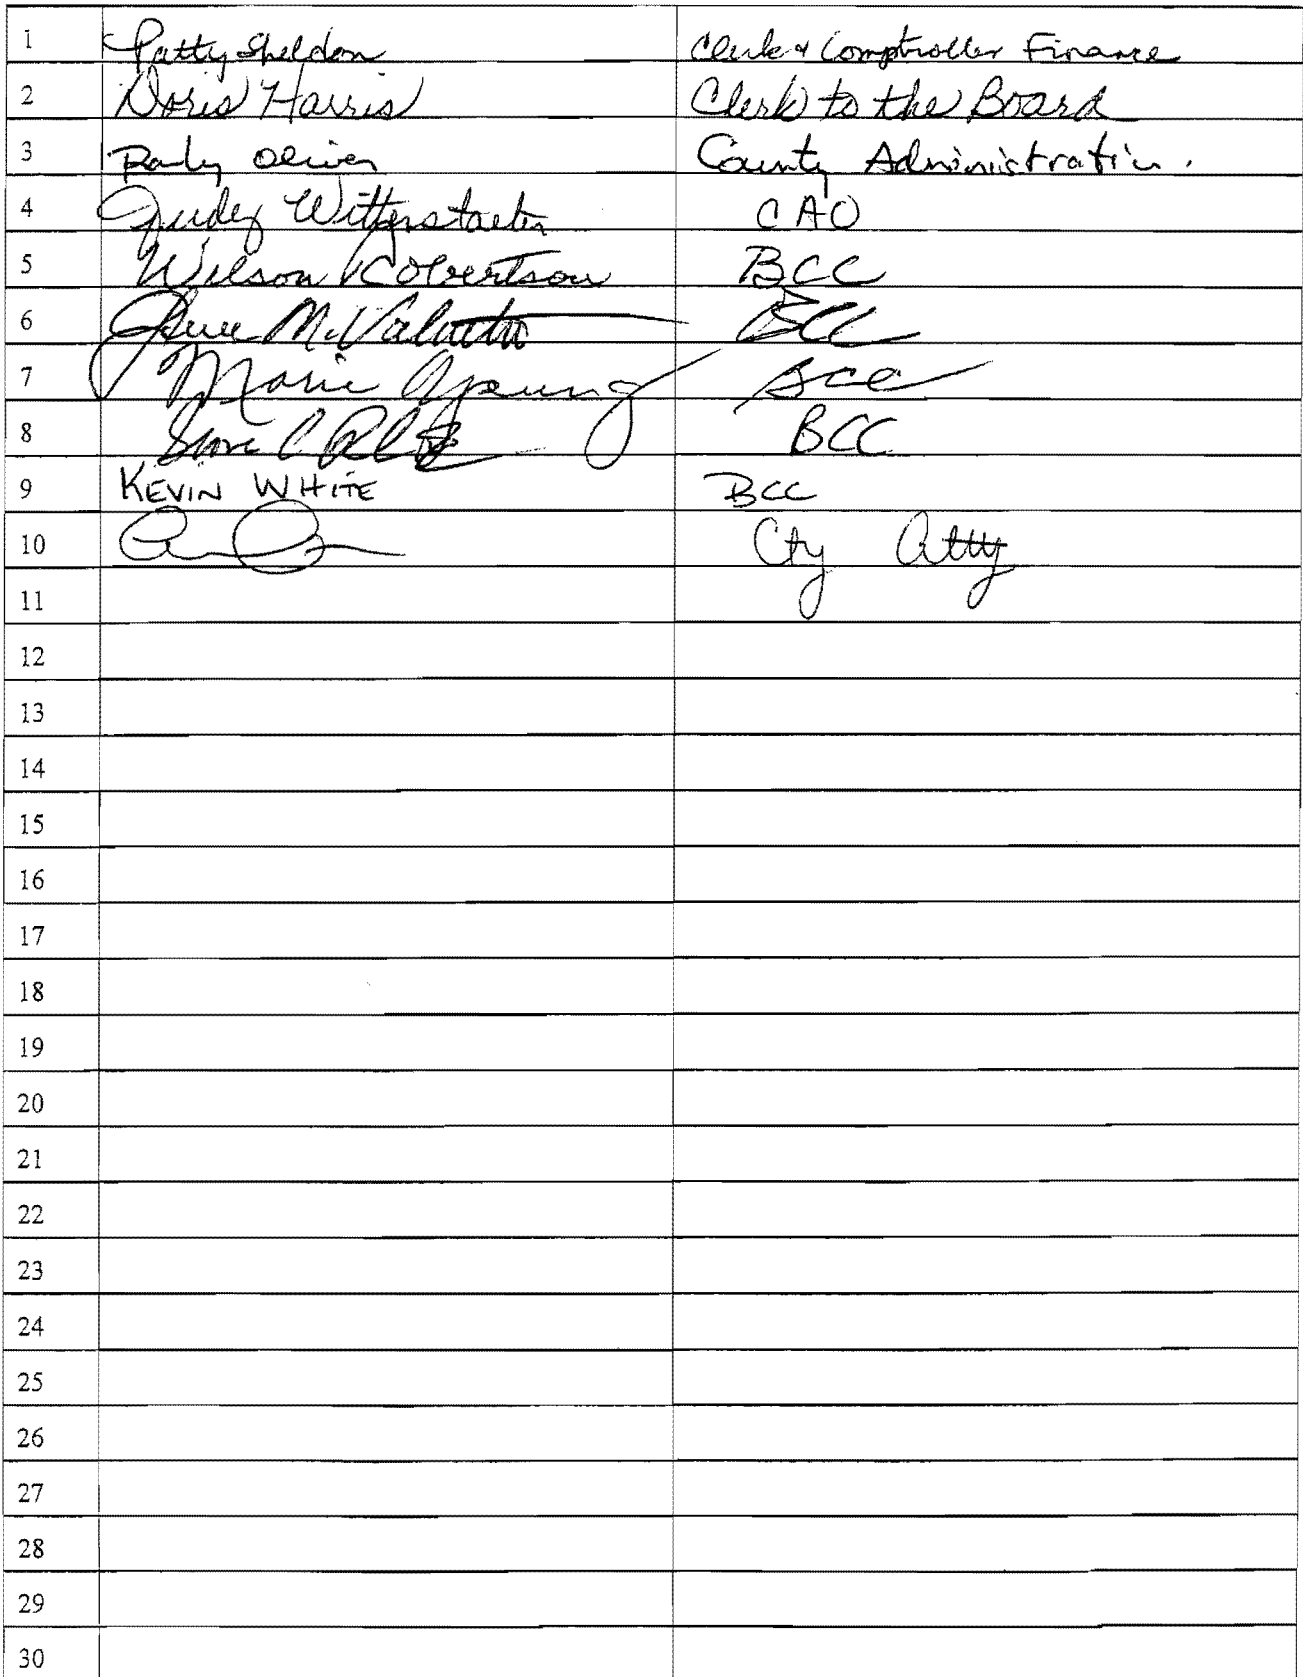 1 Patty Sheldon Clerk & Comptroller Finance
2 Doris Harris Clerk to the Board
3 Randy Oliver County Administration.
4 Judy Witterstaeter CAO
5 Wilson Robertson BCC
6 Gene M. Valentino BCC
7 Marie Young BCC
8 BCC
9 KEVIN WHITE BCC
10 Cty Atty
11
12
13
14
15
16
17
18
19
20
21
22
23
24
25
26
27
28
29
30